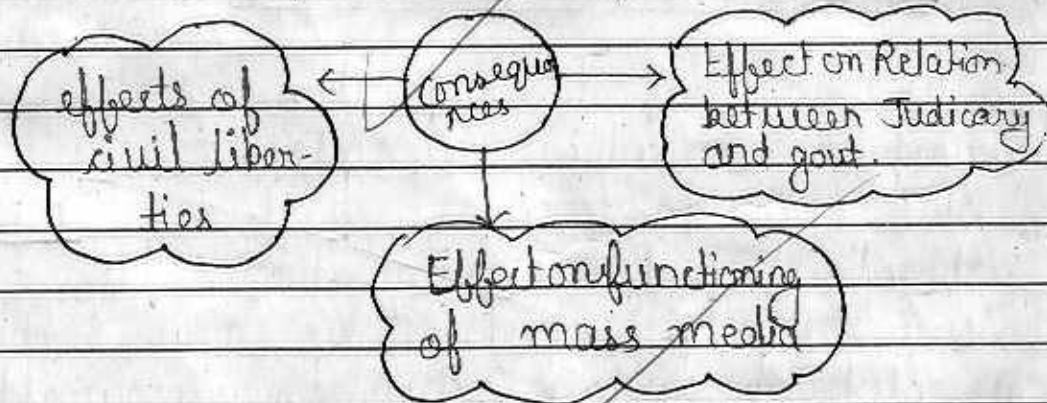 effects of
civil liber-
ties
Consequa
nces
Effect on Relation
between Judicary
and govt.
Effect on functioning
of mass media